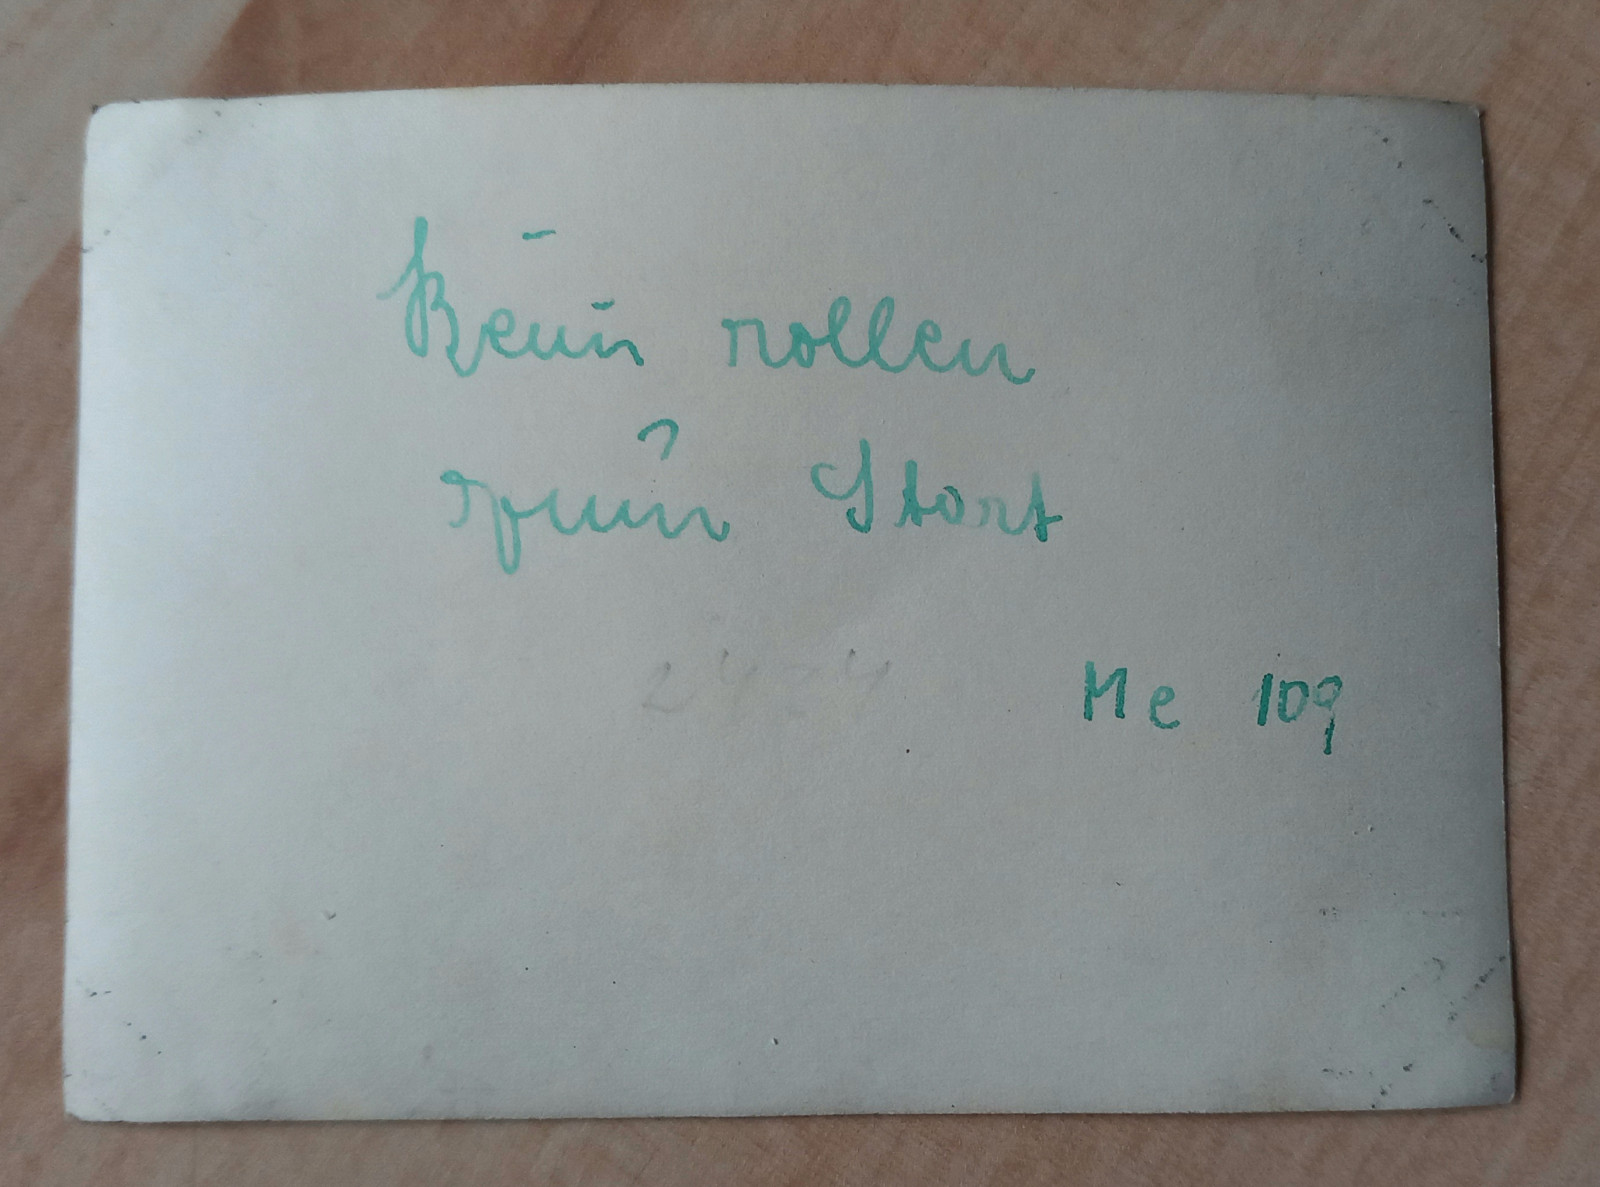 Beim rollen
zum Start
Me 109